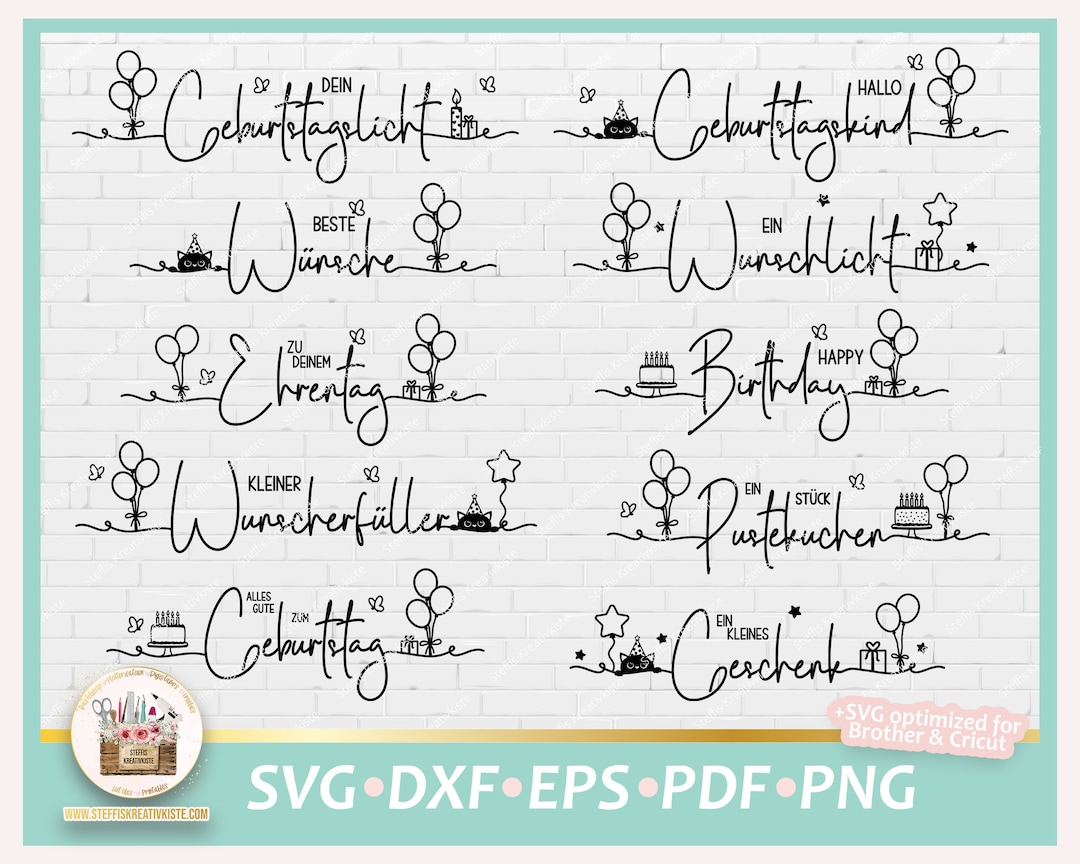 DEIN
Geburtstagslicht
HALLO
Geburtstagskind
BESTE
Wünsche
EIN
Wunschlicht
ZU
DEINEM
Ehrentag
HAPPY
Birthday
KLEINER
Wunscherfüller
EIN
STÜCK
Pustekuchen
ALLES
GUTE
ZUM
Geburtstag
EIN
KLEINES
Geschenk
+SVG optimized for
Brother & Cricut
STEFFIS
KREATIVKISTE
WWW.STEFFISKREATIVKISTE.COM
SVG•DXF•EPS•PDF•PNG